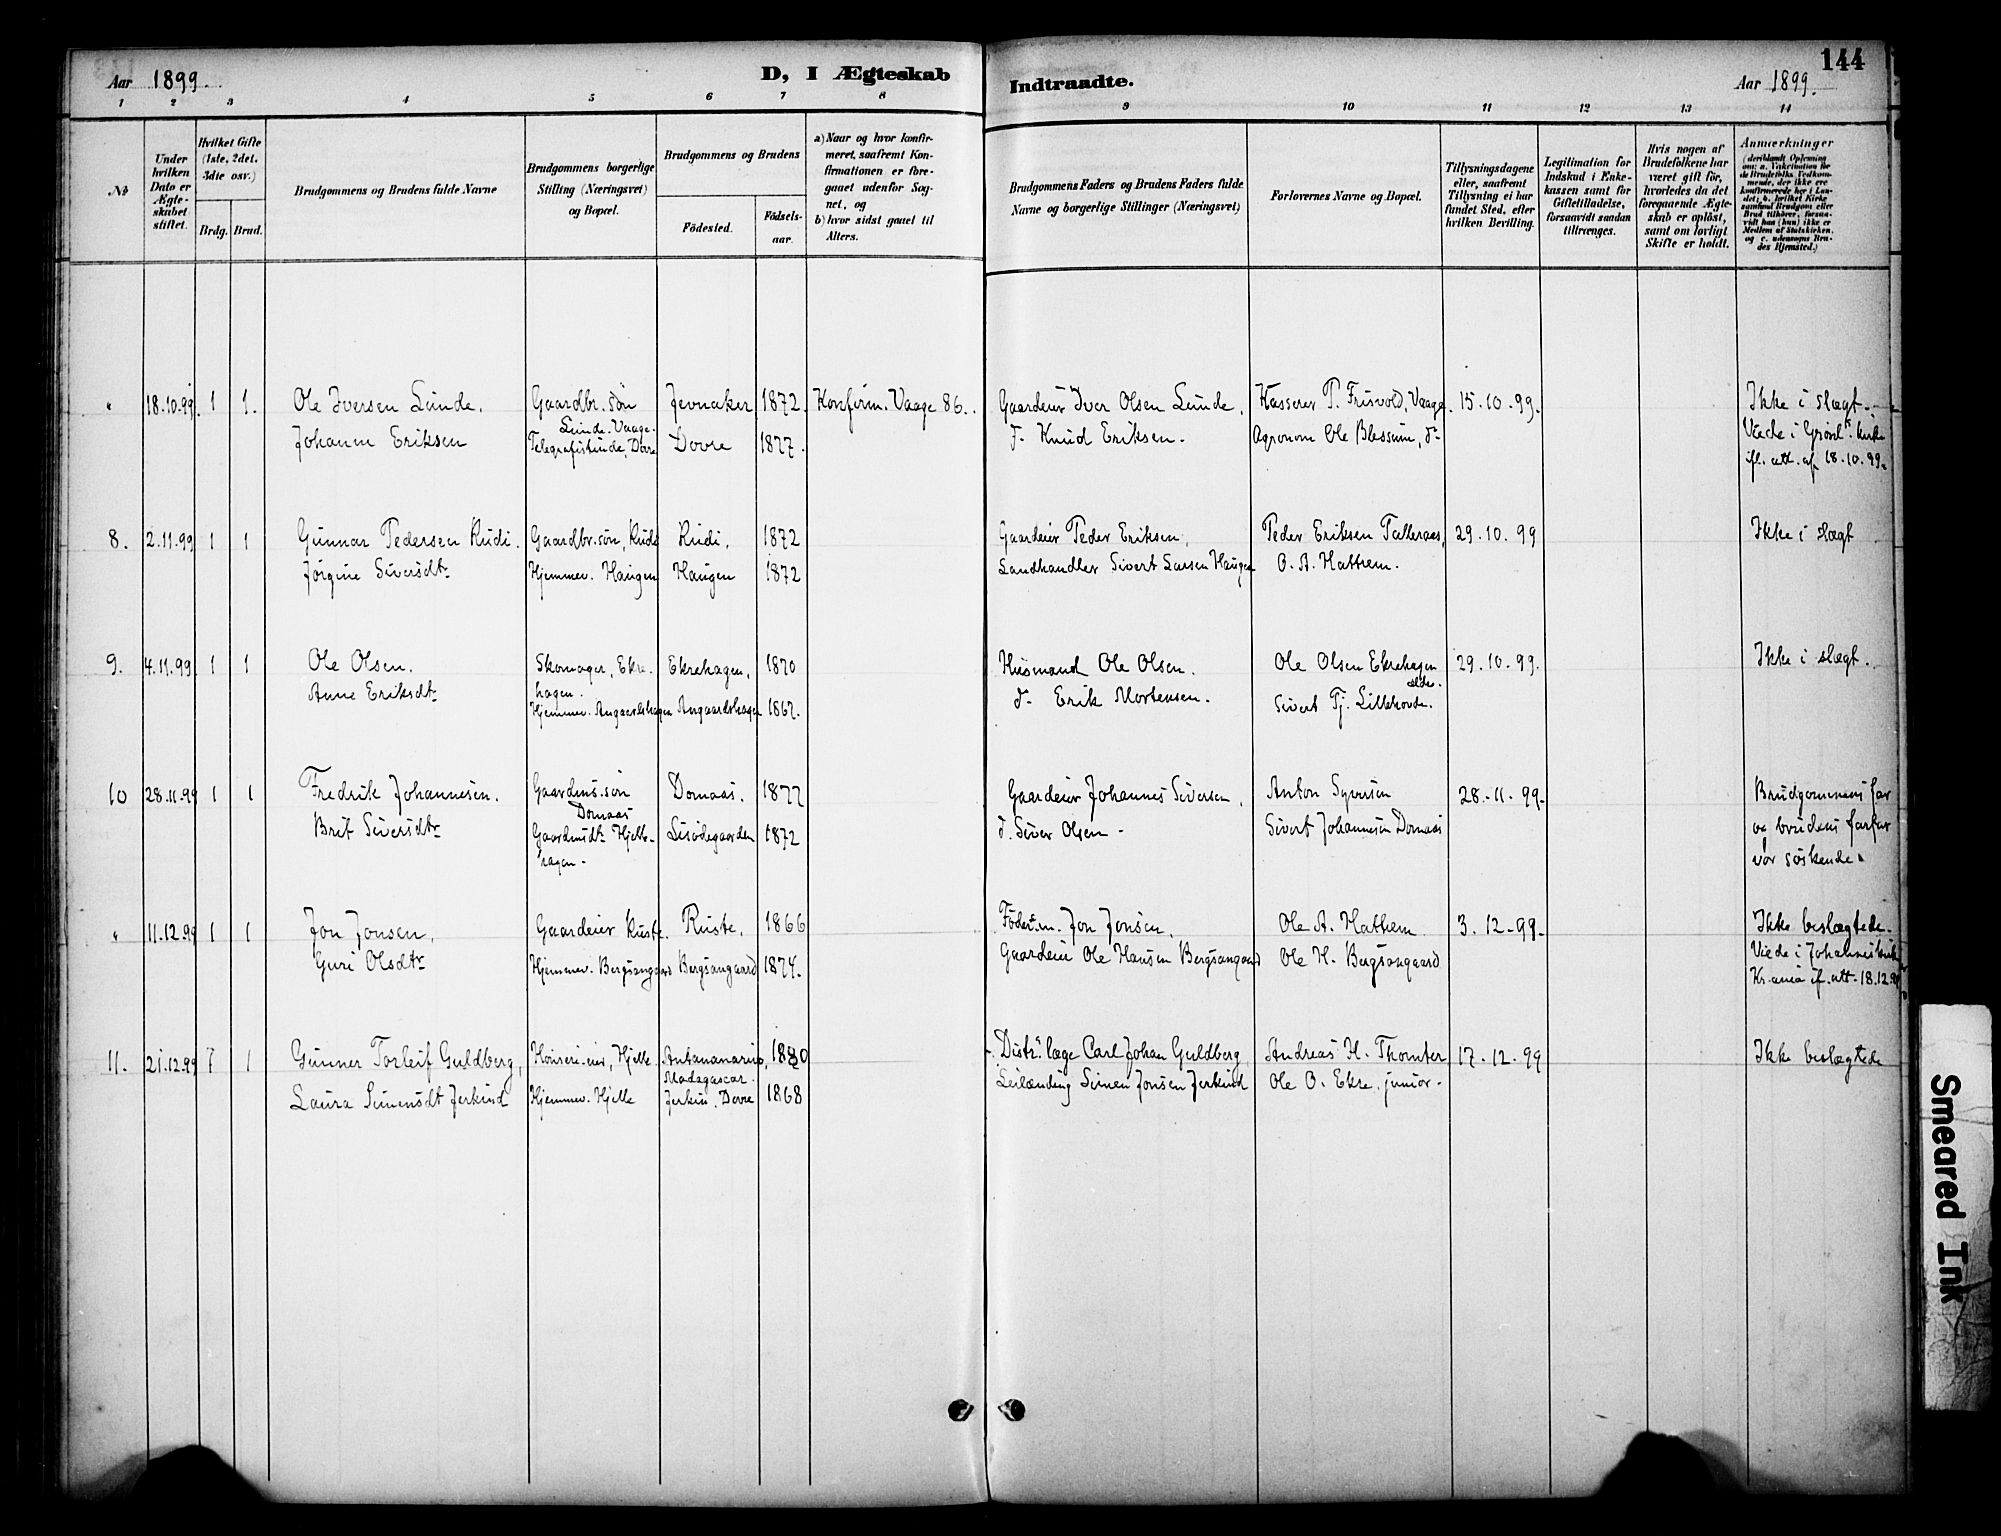 Aar 1899.
D, I Ægteskab
Indtraadte.
Aar 1899.
144
1 2 3 4 5 6 7 8 9 10 11 12 13 14
№
Under hvilken Dato er Ægteskabet stiftet.
Hvilket Gifte (1ste, 2det, 3die osv.)
Brdg. Brud.
Brudgommens og Brudens fulde Navne
Brudgommens borgerlige Stilling (Næringsvei) og Bopæl.
Brudgommens og Brudens
Födested.
Födselsaar.
a) Naar og hvor konfirmeret, saafremt Konfirmationen er foregaaet udenfor Sognet, og
b) hvor sidst gaaet til Alters.
Brudgommens Faders og Brudens Faders fulde Navne og borgerlige Stillinger (Næringsvei)
Forlovernes Navne og Bopæl.
Tillysningsdagene eller, saafremt Tillysning ei har fundet Sted, efter hvilken Bevilling.
Legitimation for Indskud i Enkekassen samt for Giftetilladelse, forsaavidt saadan tiltrænges.
Hvis nogen af Brudefolkene har været gift för, hvorledes da det foregaaende Ægteskab er oplöst, samt om lovligt Skifte er holdt.
Anmærkninger
(deriblandt Oplysning om: a. Vakcination for de Brudefolks Vedkommende, der ikke ere konfirmerede her i Landet; b. hvilket Kirkesamfund Brudgom eller Brud tilhörer, forsaavidt han (hun) ikke er Medlem af Statskirken, og c. udensogns Brudes Hjemsted.)
" 18.10.99. 1 1. Ole Iversen Lunde. Gaardbr. søn Jevnaker 1872. Konfirm. Vaage 86. Gaardeier Iver Olsen Lunde, Kasserer P. Frisvold, Vaage. 15.10.99. Ikke i slægt.
Lunde. Vaage.
Johanne Eriksen Telegrafistinde, Dovre Dovre 1877. Knud Eriksen. Agronom Ole Blessum, Viede i kirke
ifl. att. af 18.10.99.
8. 2.11.99 1 1 Gunnar Pedersen Rudi. Gaardbr. søn, Rudi Rudi. 1872 Gaardeier Peder Eriksen, Peder Eriksen Talleraas, 29.10.99 Ikke i slægt
Jørgine Siversdtr Hjemmev. Haugen Haugen 1872 Landhandler Sivert Larsen Haugen O. A. Hattrem.
9. 4.11.99. 1 1 Ole Olsen. Skomager, Ekre- Ekrehagen, 1870 Husmand Ole Olsen. Ole Olsen Ekrehagen 29.10.99. Ikke i slægt.
hagen. ældre.
Anne Eriksdtr Hjemmev. Angaardshagen Angaardshagen 1867. Erik Mortensen. Sivert Tj. Lillehovde.
10 28.11.99 1 1 Fredrik Johannesen. Gaardeiers søn Dornaas. 1877 Gaardeier Johannes Siversen, Anton Syversen 28.11.99. Brudgommens far
Dornaas
Brit Siversdtr Gaardeiersdtr Hjelle- 1872 Siver Olsen. Sivert Johannesen Dornaas og brudens farfar
hagen. var søskende.
" 11.12.99 1 1 Jon Jonsen, Gaardeier Ruste. Ruste, 1866 Føder.m. Jon Jonsen, Ole A. Hattrem 3.12.99. Ikke beslægtede.
Guri Olsdtr Hjemmev. Bergsangaard Bergsangaard 1874. Gaardeier Ole Hansen Bergsangaard Ole H. Bergsangaard Viede i Johannes kirke
Kr.ania if. att. 18.12.99
11. 21.12.99 1 1 Gunner Torleif Guldberg, Hjelle Antananarivo, 1880 Distr. læge Carl Johan Guldberg Andreas H. Thomter 17.12.99 Ikke beslægtede
Madagascar.
Laura Simensdt Jerkind Hjemmev. Hjelle Jerkin, Dovre 1868 Leilænding Simen Jonsen Jerkind Ole O. Ekre, junior.
Smeared Ink